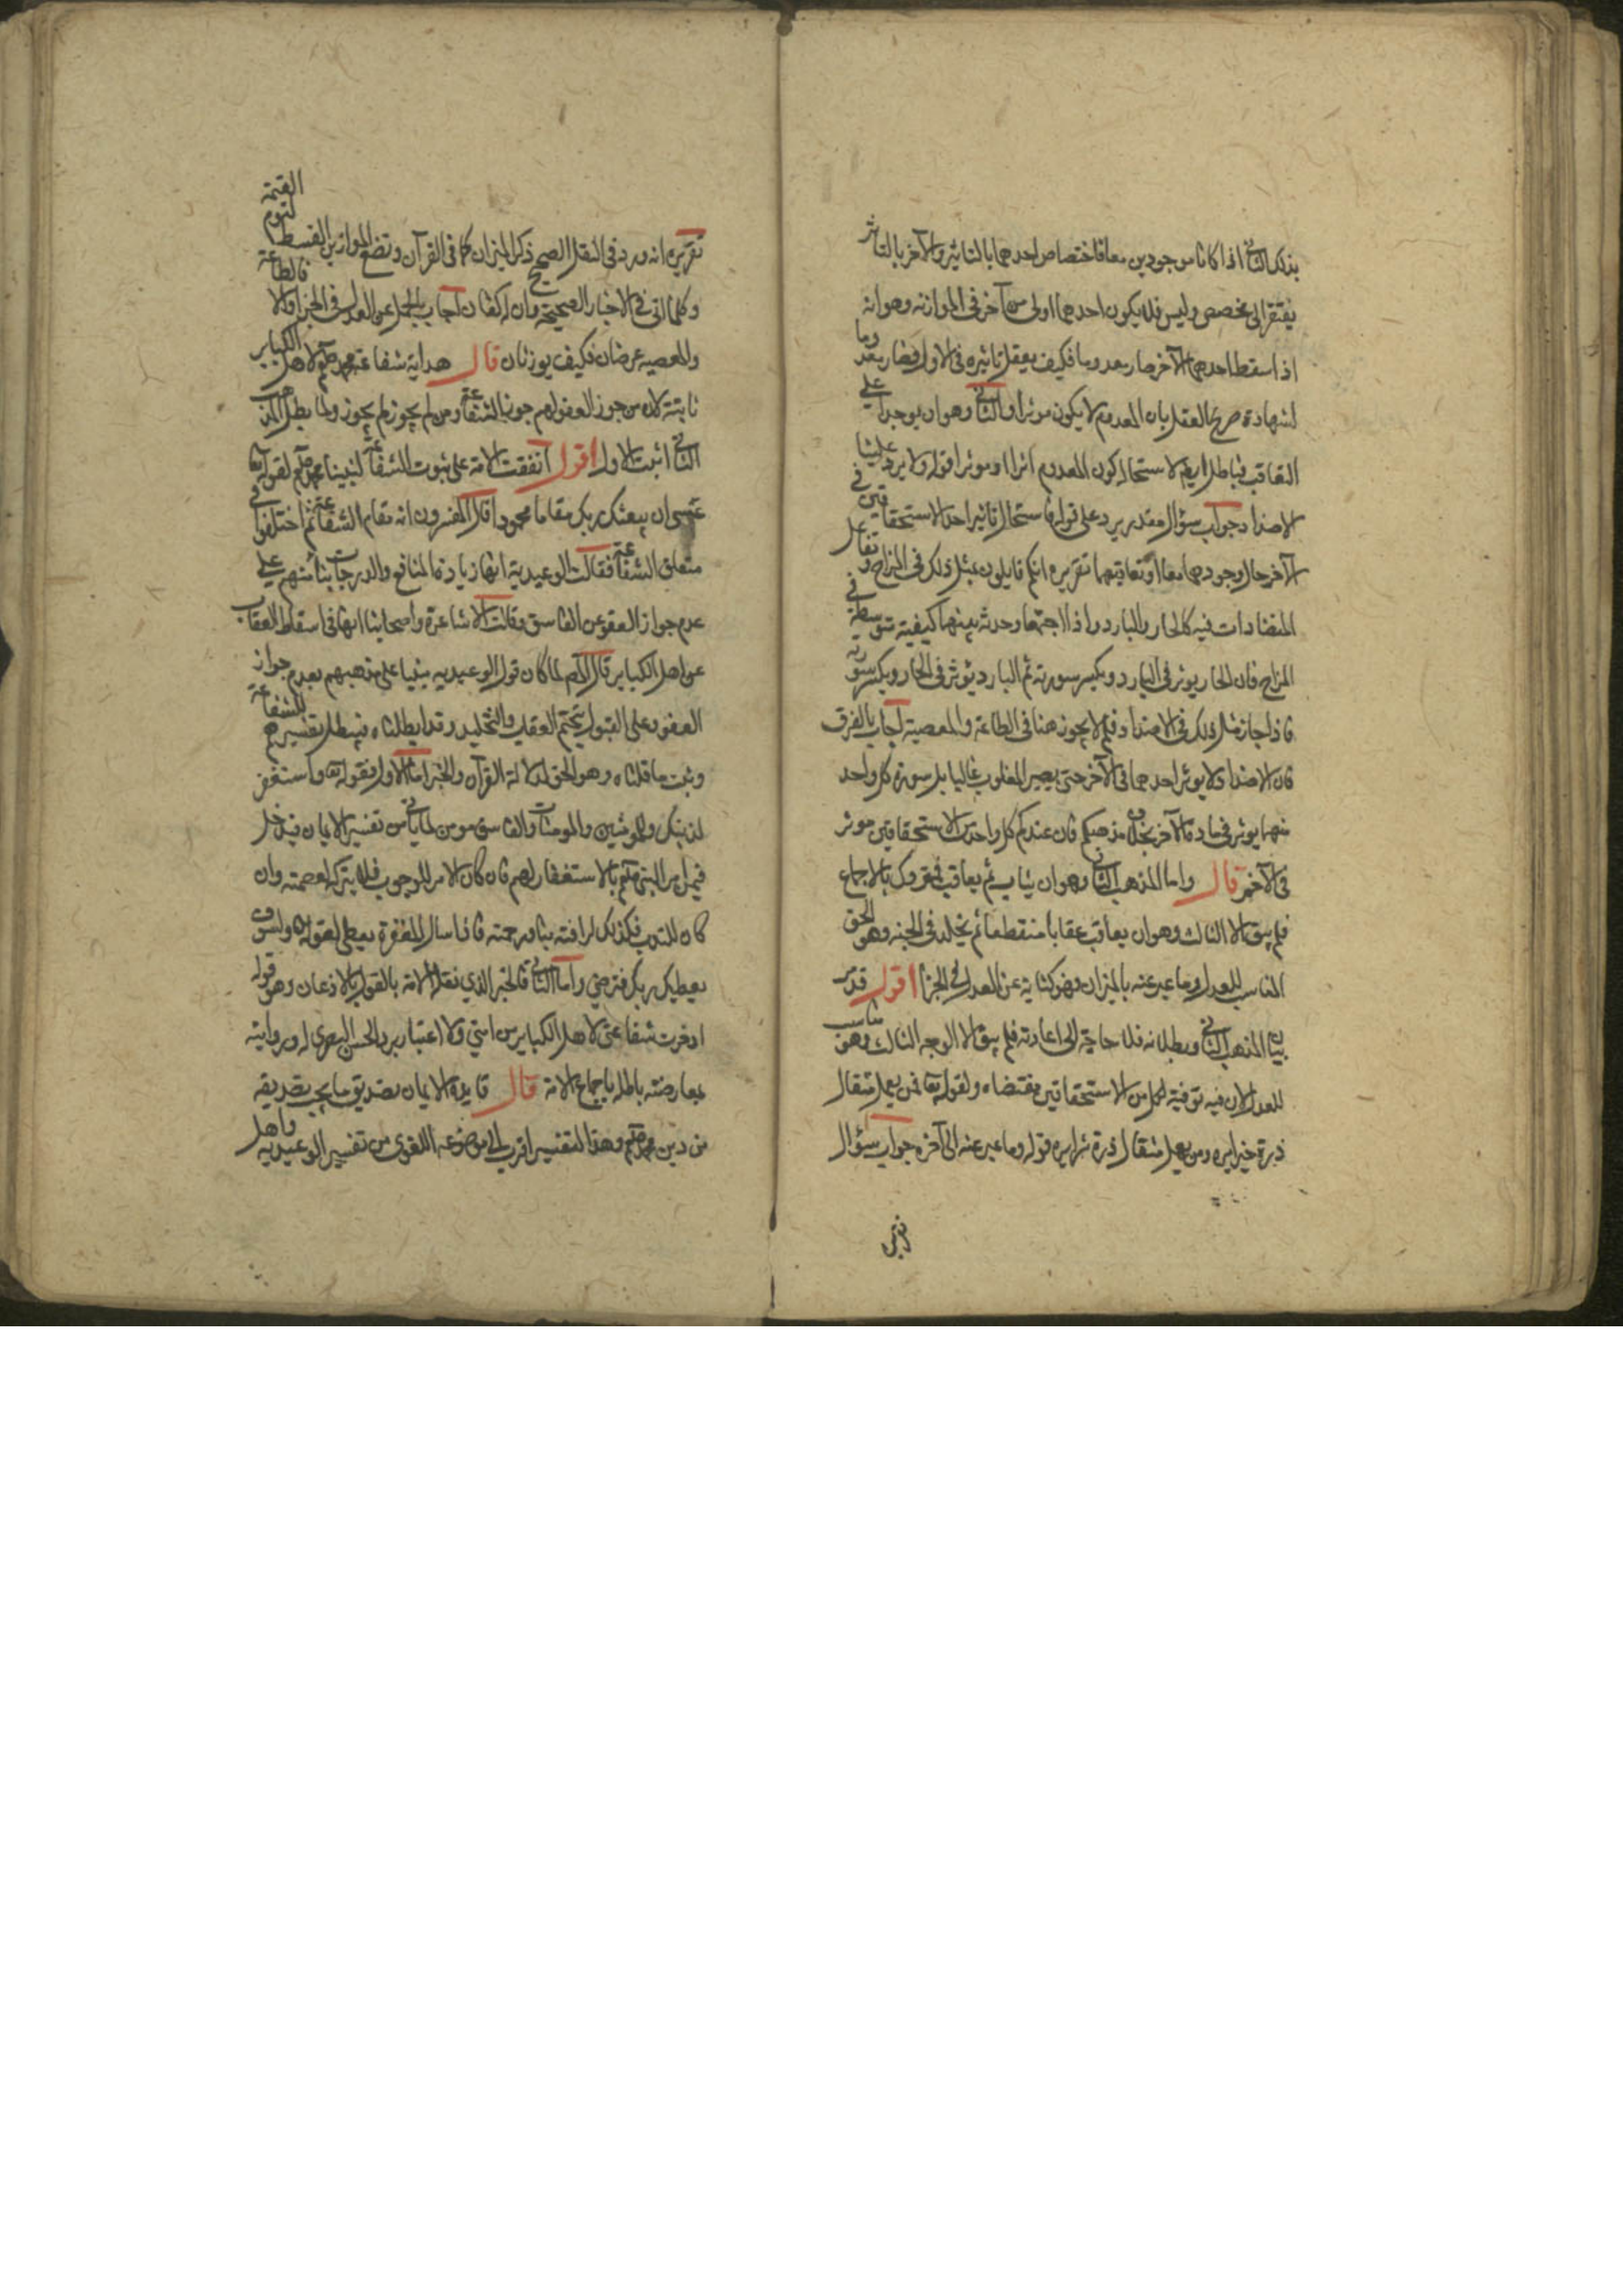 بذلك الثاني اذا كانا موجودين معا فاختصاص احدهما بالتاثير والآخر بالتاثر
يفتقر الى مخصص وليس فلا يكون احدهما اولى من آخر في الموازنة وهو انه
اذا سقط احدهما الآخر صار معدوما فكيف يعقل تاثيره في الاول فصار معدوما
لشهادة صريح العقل بان المعدوم لا يكون موثرا والثاني وهو ان يوجدا على
التعاقب فباطل ايضا لاستحالة كون المعدوم اثرا او موثرا قوله ولا يرد علينا
الاضداد جواب سؤال مقدر يرد على قوله فاستحال تاثير احد الاستحقاقين في
الآخر حال وجودهما معا او تعاقبهما تقريره انكم قايلون بمثل ذلك في المزاج وتفاعل
المتضادات فيه كالحار والبارد اذا اجتمعا وحدث بينهما كيفية متوسطة في
المزاج فان الحار يوثر في البارد ويكسر سورته ثم البارد يوثر في الحار ويكسر سورته
فاذا جاز مثل ذلك في الاضداد فلم لا يجوز هنا في الطاعة والمعصية اجاب بالفرق
فان الاضداد لا يوثر احدهما في الآخر حتى يصير المغلوب غالبا بل سورة كل واحد
منهما يوثر في مادة الآخر بخلاف مذهبكم فان عندكم كل واحد من الاستحقاقين موثر
في الآخر قال واما المذهب الثاني وهو ان يثاب ثم يعاقب فمتروك بالاجماع
فلم يبق الا الثالث وهو ان يعاقب عقابا منقطعا ثم يخلد في الجنة وهو الحق
المناسب للعدل وما عبر عنه بالميزان وهو كناية عن العدل في الجزا اقول قد مر
بيان المذهب الثاني وبطلانه فلا حاجة الى اعادته فلم يبق الا الوجه الثالث وهو مناسب
للعدل لان فيه توفية لكل من الاستحقاقين مقتضاه ولقوله تعا فمن يعمل مثقال
ذرة خيرا يره ومن يعمل مثقال ذرة شرا يره قوله وما عبر عنه الى آخره جواب سؤال
تقريره انه ورد في النقل الصحيح ذكر الميزان كما في القرآن ونضع الموازين القسط ليوم القيمة
وكما اتى في الاخبار الصحيحة وان له كفتان اجاب بالحمل عن العدل في الجزا والا فالطاعة
والمعصية عرضان فكيف يوزنان قال هداية شفاعة محمد صلعم لاهل الكباير
ثابتة لان من جوز العفو لهم جوز الشفاعة ومن لم يجوزه لم يجوز ولما بطل المذهب
الثاني اثبت الاول اقول اتفقت الامة على ثبوت الشفاعة لنبينا محمد صلعم لقوله تعا
عسى ان يبعثك ربك مقاما محمودا قال المفسرون انه مقام الشفاعة ثم اختلفوا في
متعلق الشفاعة فقالت الوعيدية انها زيادة المنافع والدرجات بناء منهم على
عدم جواز العفو عن الفاسق وقالت الاشاعرة واصحابنا انها في اسقاط العقاب
عن اهل الكباير قال لما كان قول الوعيدية مبنيا على مذهبهم بعدم جواز
العفو وعلى القول بتحتم العقاب والتخليد وقد ابطلناه فيبطل تفسيرهم للشفاعة
وثبت ما قلناه وهو الحق لدلالة القرآن والخبر اما الاول فقوله تعا واستغفر
لذنبك وللمومنين والمومنات والفاسق مومن لما ياتي من تفسير الايمان فيدخل
فيمن امر النبي صلعم بالاستغفار لهم فان كان الامر للوجوب فلا يتركه لعصمته وان
كان للندب فكذلك لرافته بنا ورحمته فاذا سال المغفرة يعطى لقوله تعا ولسوف
يعطيك ربك فترضى واما الثاني فالخبر الذي نقله الامة بالقول والاذعان وهو قوله
ادخرت شفاعتي لاهل الكباير من امتي ولا اعتبار برد الحسن البصري له وروايته
بمعارضته باطلة باجماع الامة قال فايدة الايمان تصديق ما يجب تصديقه
من دين محمد صلعم وهذا التفسير اقرب الى موضوعه اللغوي من تفسير الوعيدية واهل